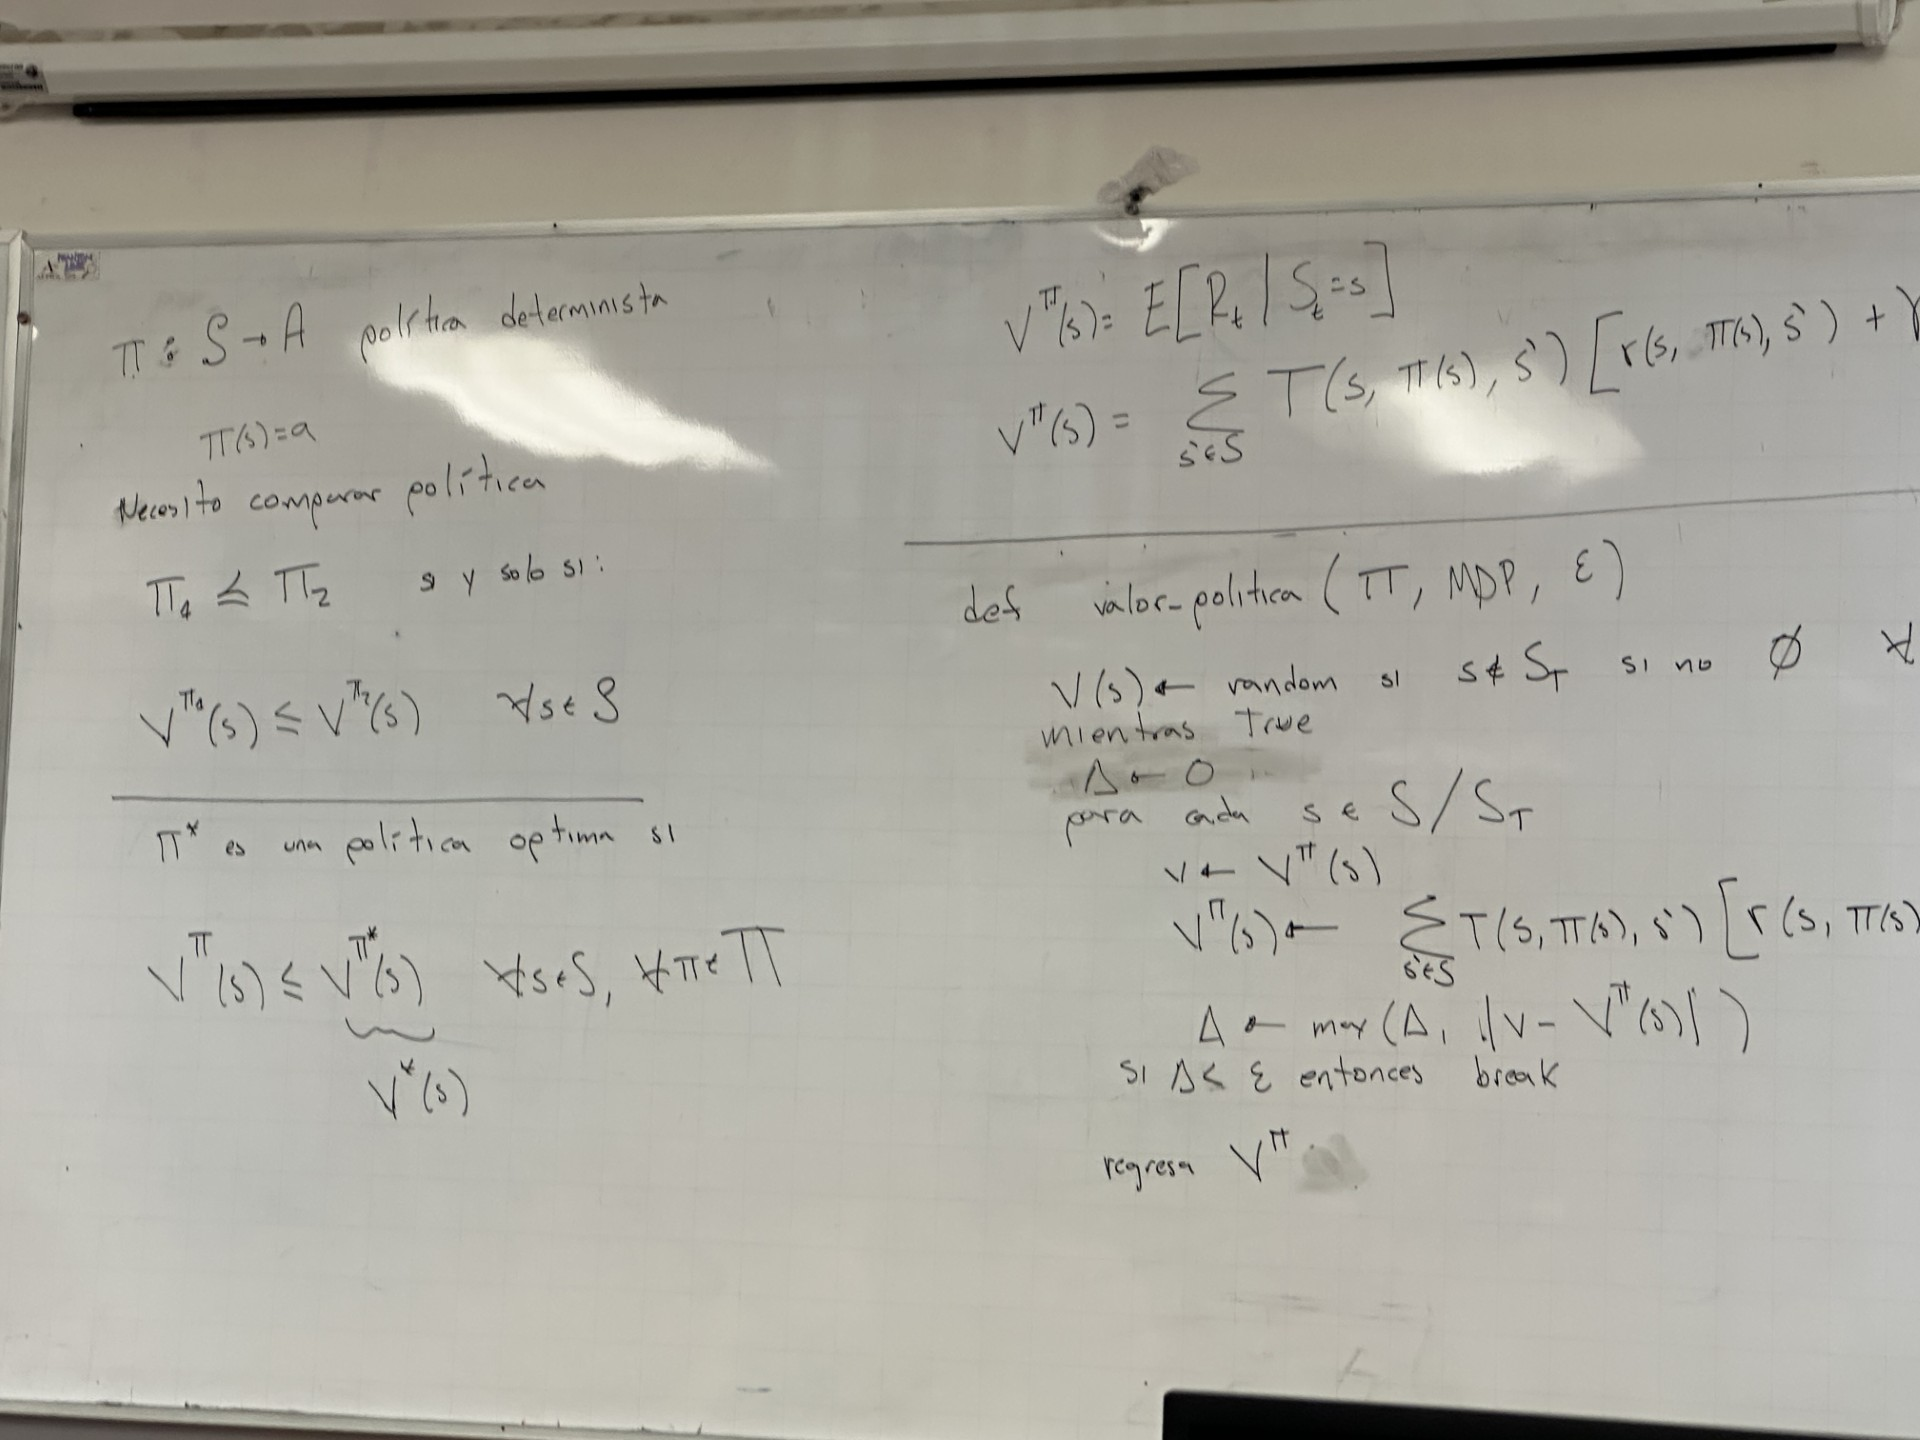 π : S → A política determinista
π(s)=a
Necesito comparar política
π₁ ≤ π₂ si y solo si:
V^π₁(s) ≤ V^π₂(s) ∀s∈S
π* es una política optima si
V^π(s) ≤ V^π*(s) ∀s∈S, ∀π∈Π
V*(s)
V^π(s)= E[R_t | S_t=s]
V^π(s) = Σ_{s'∈S} T(s, π(s), s') [r(s, π(s), s') + γ
def valor-politica (π, MDP, ε)
V(s) ← random si s∉S_T si no ∅ ∀
mientras True
Δ ← 0
para cada s ∈ S/S_T
v ← V^π(s)
V^π(s) ← Σ_{s'∈S} T(s, π(s), s') [r(s, π(s)
Δ ← max(Δ, |v - V^π(s)|)
si Δ< ε entonces break
regresa V^π